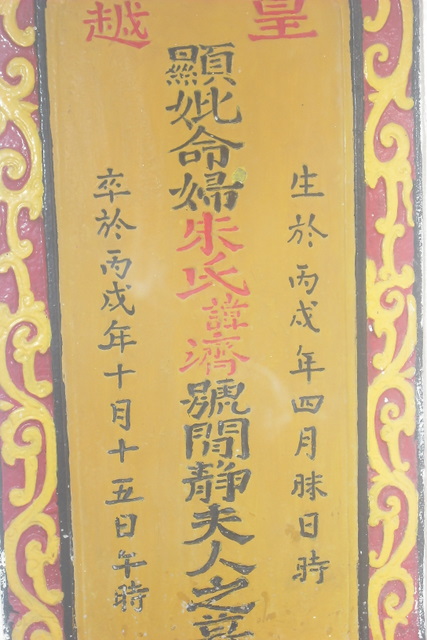 皇越
生於丙戌年四月日時
顯妣命婦朱氏諱濟號閒靜夫人之
卒於丙戌年十月十五日午時